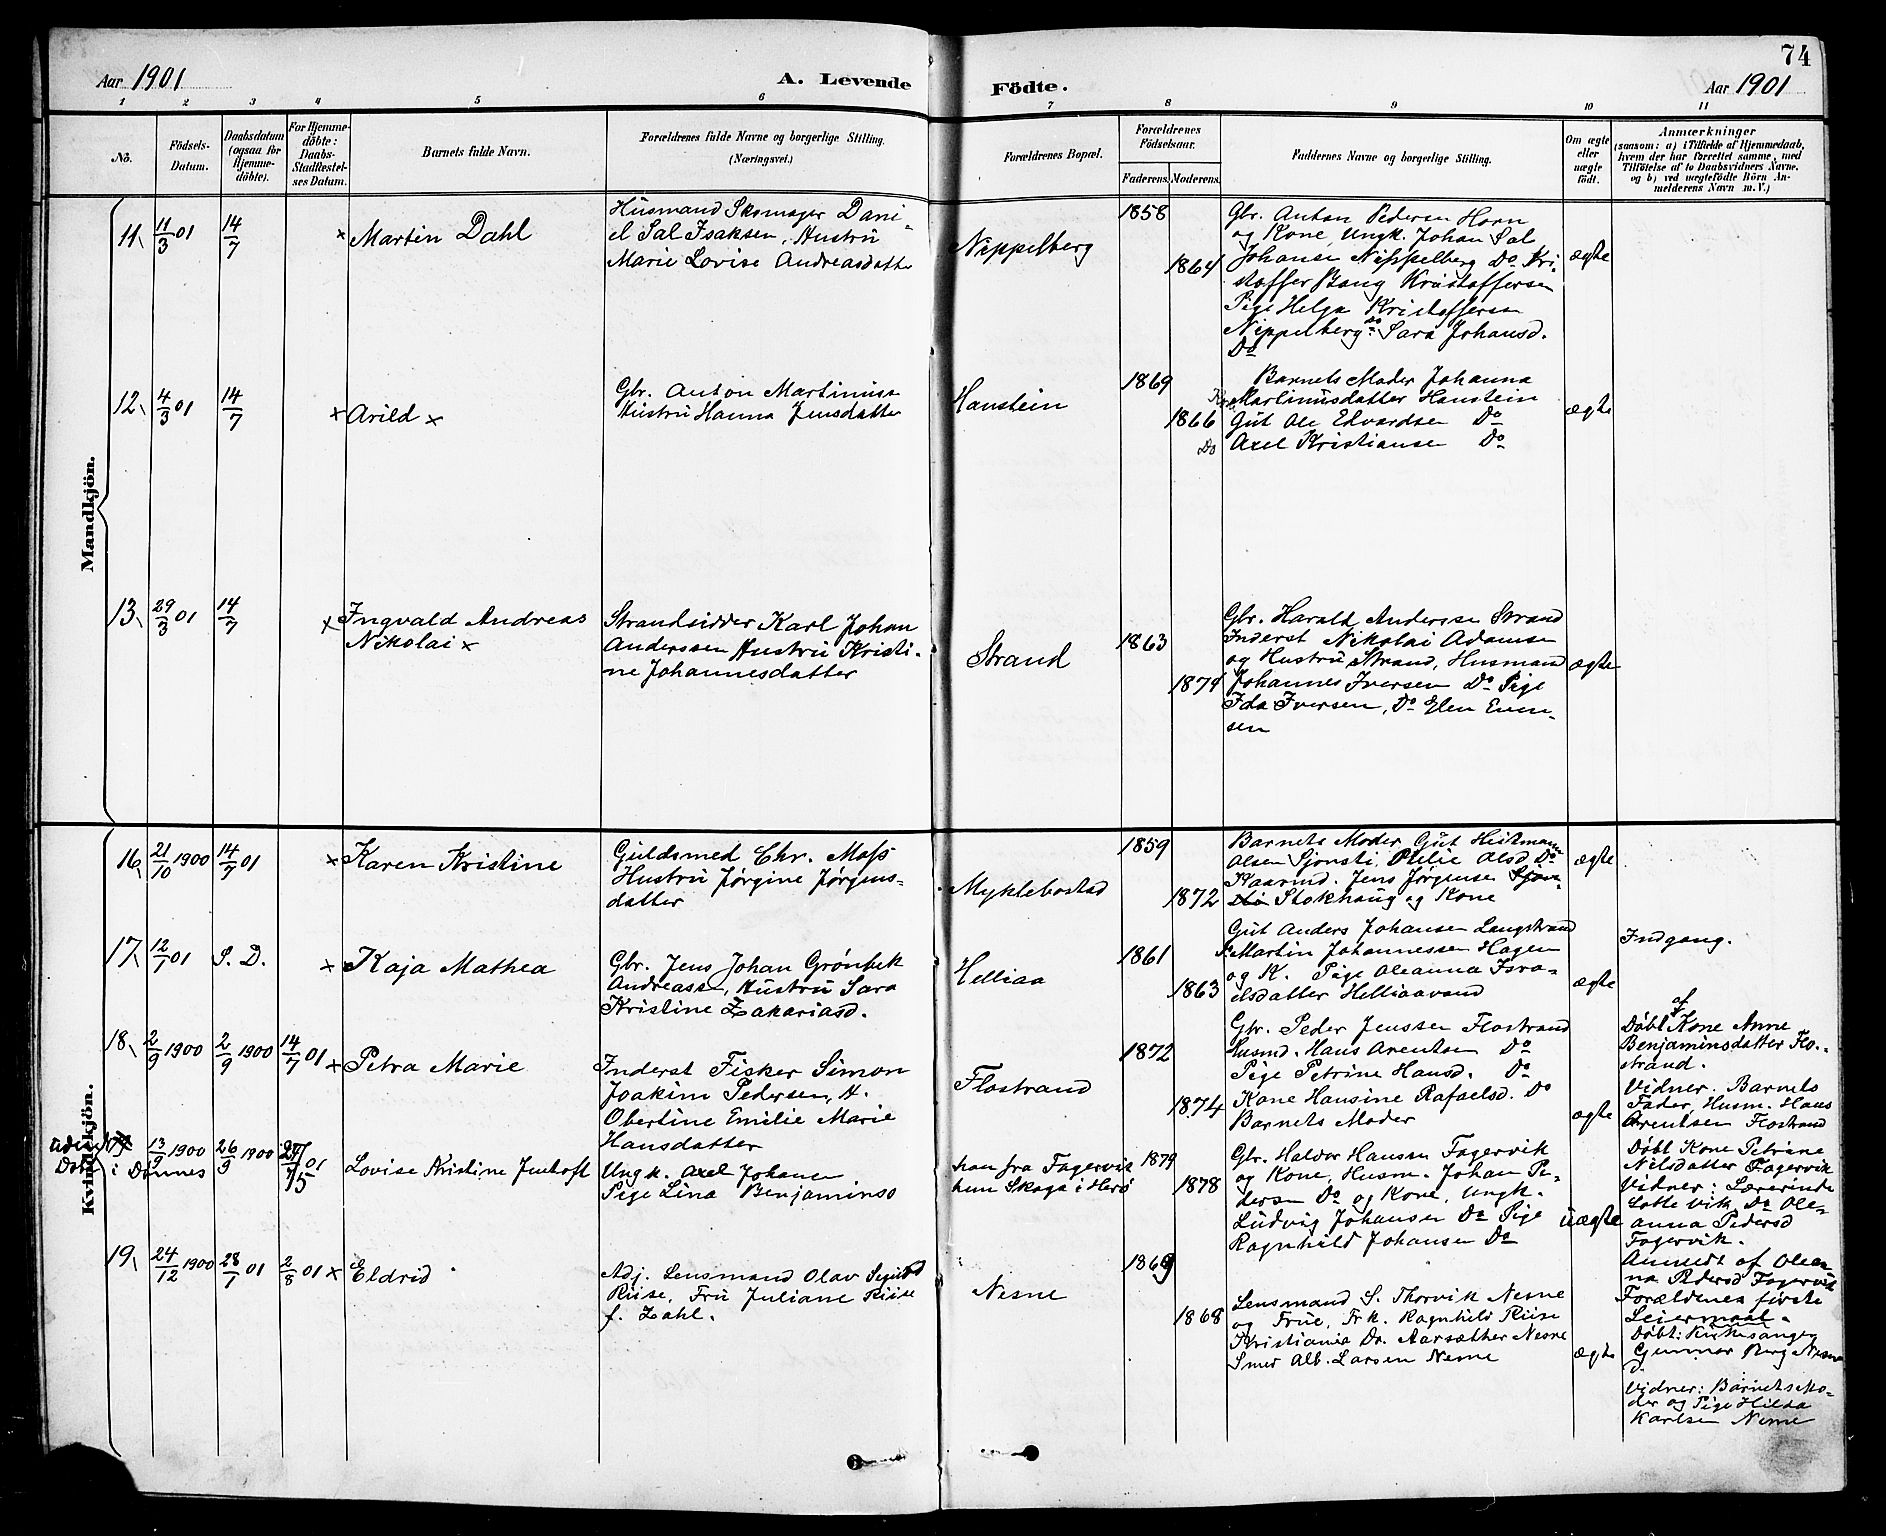 74
Aar 1901
A. Levende
Födte.
Aar 1901
1 2 3 4 5 6 7 8 9 10 11
No.
Födsels-
Datum.
Daabsdatum
(ogsaa for
Hjemme-
döbte).
For Hjemme-
döbte:
Daabs-
Stadfæstel-
ses Datum.
Barnets fulde Navn.
Forældrenes fulde Navne og borgerlige Stilling.
(Næringsvei.)
Forældrenes Bopæl.
Forældrenes
Födselsaar.
Faderens. Moderens.
Faddernes Navne og borgerlige Stilling.
Om ægte
eller
uægte
födt.
Anmærkninger
(saasom: a) i Tilfælde af Hjemmedaab,
hvem der har forrettet samme, med
Tilföielse af to Daabsvidners Navne,
og b) ved uægtefödte Börn An-
melderens Navn m. V.)
Mandkjön.
11, 11/3 01 14/7
× Martin Dahl
Husmand Skomager Dani-
el Sal Isaksen, Hustru
Marie Lovise Andreasdatter
Nippelberg
1858
1864
Gbr. Anton Pedersen Horn
og Kone, Ungk. Johan Sal
Johansen Nippelberg Do Kri-
stoffer Bang Kristoffersen
Pige Helga Kristoffersen
Nippelberg Do Sara Johansd.
Do
ægte
12, 4/3 01 14/7
× Arild ×
Gbr. Anton Martinus
Hustru Hanna Jensdatter
Hanstein
1869
1866
Barnets Moder Johanna
Martinusdatter Hanstein
Gut Ole Edvardsen Do
Do Axel Kristiansen Do
ægte
13, 29/3 01 14/7
× Ingvald Andreas
Nikolai ×
Strandsidder Karl Johan
Anderssen Hustru Kristi-
ne Johannesdatter
Strand
1863
1874
Gbr. Harald Andersen Strand
Inderst Nikolai Adamsen
og Hustru Strand, Husmand
Johannes Iversen Do Pige
Ida Iversen, Do Elen Even-
sen
ægte
Kvindekjön.
16, 21/10 1900 14/7 01
× Karen Kristine
Guldsmed Chr. Moss
Hustru Jørgine Jørgens-
datter
Myklebostad
1859
1872
Barnets Moder Gut Heitmann
Olsen Sjonsti, Olsd Do
Kaarmd. Jens Jørgensen Sjon-
sti Stokhaug og Kone
ægte
17, 12/1 01 S. D.
× Kaja Mathea
Gbr. Jens Johan Grønbek
Andreassen, Hustru Sara
Kristine Zakariasd.
Helliaa
1861
1863
Gut Anders Johansen Langstrand
Martin Johannessen Hagen
og K. Pige Oleanna Isra-
elsdatter Helliaavand
ægte
Indgang.
18, 2/9 1900 2/9 1900 14/7 01
× Petra Marie
Inderst Fisker Simon
Joakim Pedersen, H.
Obertine Emilie Marie
Hansdatter
Flostrand
1872
1874
Gbr. Peder Jenssen Flostrand
Husmd. Hans Arentsen Do
Pige Petrine Hansd. Do
Kone Hansine Rafaelsd. Do
Barnets Moder
ægte
af
Døbt Kone Anne
Benjaminsdatter Flo-
strand.
Vidner: Barnets
Fader, Husm. Hans
Arentsen Flostrand
uden No
Døbt i Dønnes
13/9 1900 26/9 1900 01
Lovise Kristine Jenhoft
Ungk. Axel Johansen
Pige Lina Benjamins
han fra Fagervik
hun Skaga i Herø
1879
1878
Gbr. Haldor Hansen Fagervik
og Kone, Husm. Johan Pe-
dersen Do og Kone, Ungk.
Ludvig Johansen Do Pige
Ragnhild Johansen Do
uægte
Døbt Kone Petrine
Nilsdatter Fagervik
Vidner: Lærerinde
Lotte Vik, Do Ole-
anna Pedersd
Fagervik.
Anmeldt af Olean-
na Pedersd Fagervik
Forældrenes første
Leiermaal.
19, 24/12 1900 28/1 01 2/8 01
× Eldrid
Adj. Lensmand Olav Sigurd
Riise, Fru Juliane Riise
f. Zahl.
Nesne
1869
1868
Lensmand S. Thorvik Nesne
og Frue, Frk. Ragnhild Riise
Kristiania Dr. Aarsæther Nesne
Smed Alb. Larsen Nesne
ægte
Døbt: Kirkesanger
Gunnar Berg Nesne
Vidner: Barnets Mo-
der og Pige Hilda
Karlsen Nesne